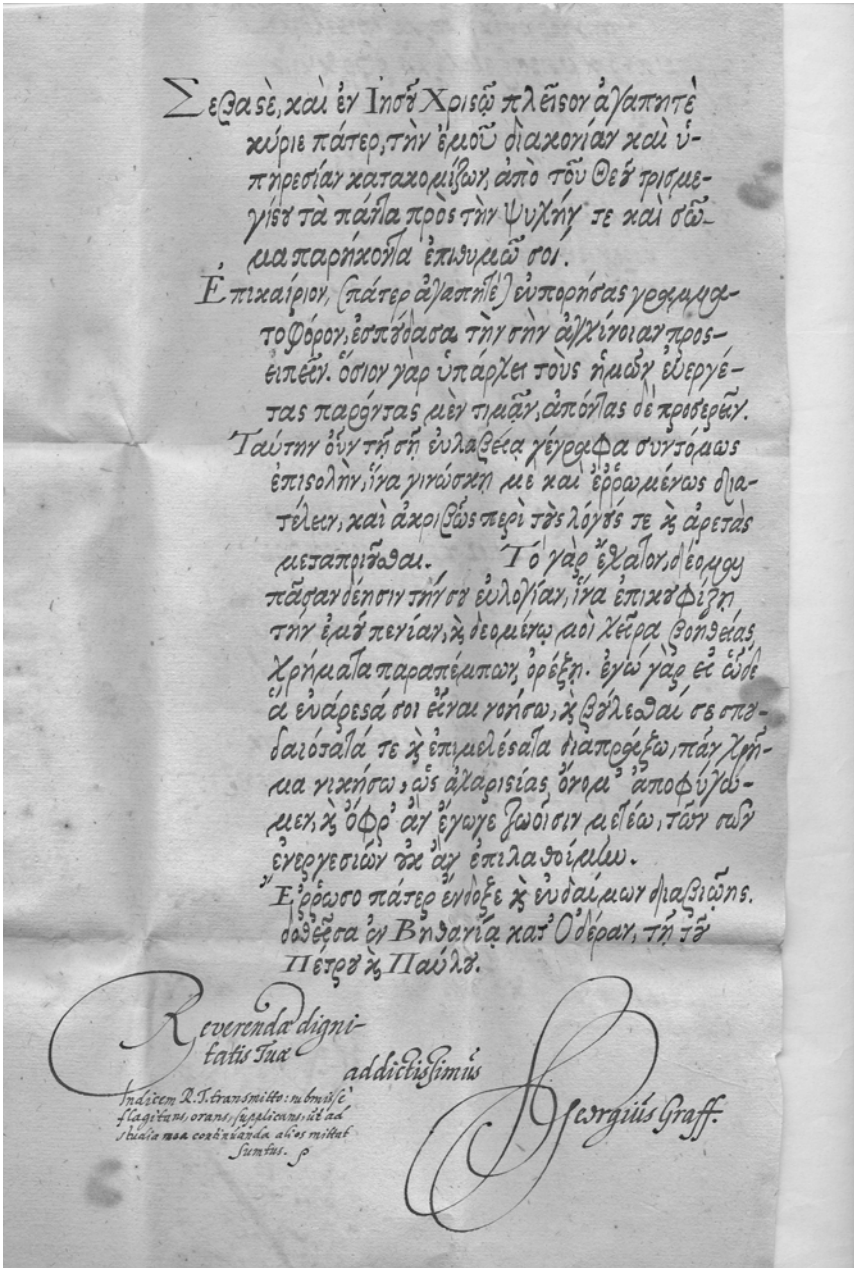 Σεβαστὲ, καὶ ἐν Ἰησοῦ Χριστῷ πλεῖστον ἀγαπητὲ
κύριε πάτερ, τὴν ἐμοῦ διακονίαν καὶ ὑ-
πηρεσίαν κατακομίζων, ἀπὸ τοῦ Θεοῦ τρισμε-
γίστου τὰ πάντα πρὸς τὴν ψυχήν τε καὶ σῶ-
μα παρήκοντα ἐπιθυμῶ σοί.
Ἐπικαίριον, (πάτερ ἀγαπητὲ) εὐπορήσας γραμμα-
τοφόρον, ἐσπούδασα τὴν σὴν ἀγχίνοιαν προς-
ειπεῖν. ὅσιον γὰρ ὑπάρχει τοὺς ἡμῶν εὐεργέ-
τας παρόντας μὲν τιμᾷν, ἀπόντας δὲ προσερεῖν.
Ταύτην οὖν τῇ σῇ εὐλαβείᾳ γέγραφα συντόμως
ἐπιστολὴν, ἵνα γινώσκῃ μὲ καὶ ἐῤῥωμένως δια-
τέλειν, καὶ ἀκριβῶς περὶ τοὺς λόγούς τε καὶ ἀρετὰς
μεταποιοῦσθαι. Τό γὰρ ἔσχατον, δέομαι
πᾶσαν δέησιν τήν σου εὐλογίαν, ἵνα ἐπικουφίζῃ
τὴν ἐμοῦ πενίαν, καὶ δεομένῳ μοὶ χεῖρα βοηθείας,
χρήματα παραπέμπων, ὀρέξῃ. ἐγὼ γὰρ εἰς ὧδε
ἅ εὐάρεστά σοι εἶναι νοήσω, καὶ βούλεσθαί σε σπου-
δαιότατά τε καὶ ἐπιμελέστατα διαπράξω, πάν χρῆ-
μα νικήσω, ὡς ἀχαριστίας ὄνομ᾽ ἀποφύγω-
μεν, καὶ ὄφρ᾽ ἀν ἔγωγε ζωοῖσιν μετέω, τῶν σῶν
ἐνεργεσιῶν οὐκ ἀν ἐπιλαθοίμην.
Ἔῤῥωσο πάτερ ἔνδοξε καὶ εὐδαίμων διαβιῴης.
δοθεῖσα ἐν Βηθανίᾳ κατ᾽ Ὀδέραν, τῇ τοῦ
Πέτρου καὶ Παύλου.
Reverendæ digni-
tatis Tuæ
addictissimus
Georgius Graff.
Indicem R. T. transmitto: submissè
flagitans, orans, supplicans, ut ad
studia mea continuanda alios mittat
sumtus.